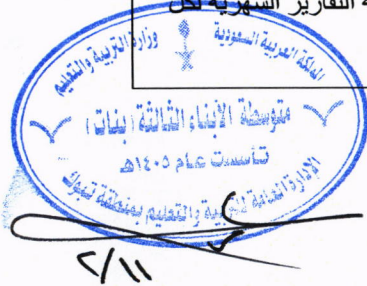 ة التقارير الشهرية لكل
المملكة العربية السعودية
وزارة التربية والتعليم
متوسطة الأبناء الثالثة (بنات)
تأسست عام ١٤٠٥هـ
الإدارة العامة للتربية والتعليم بمنطقة تبوك
٢/١١